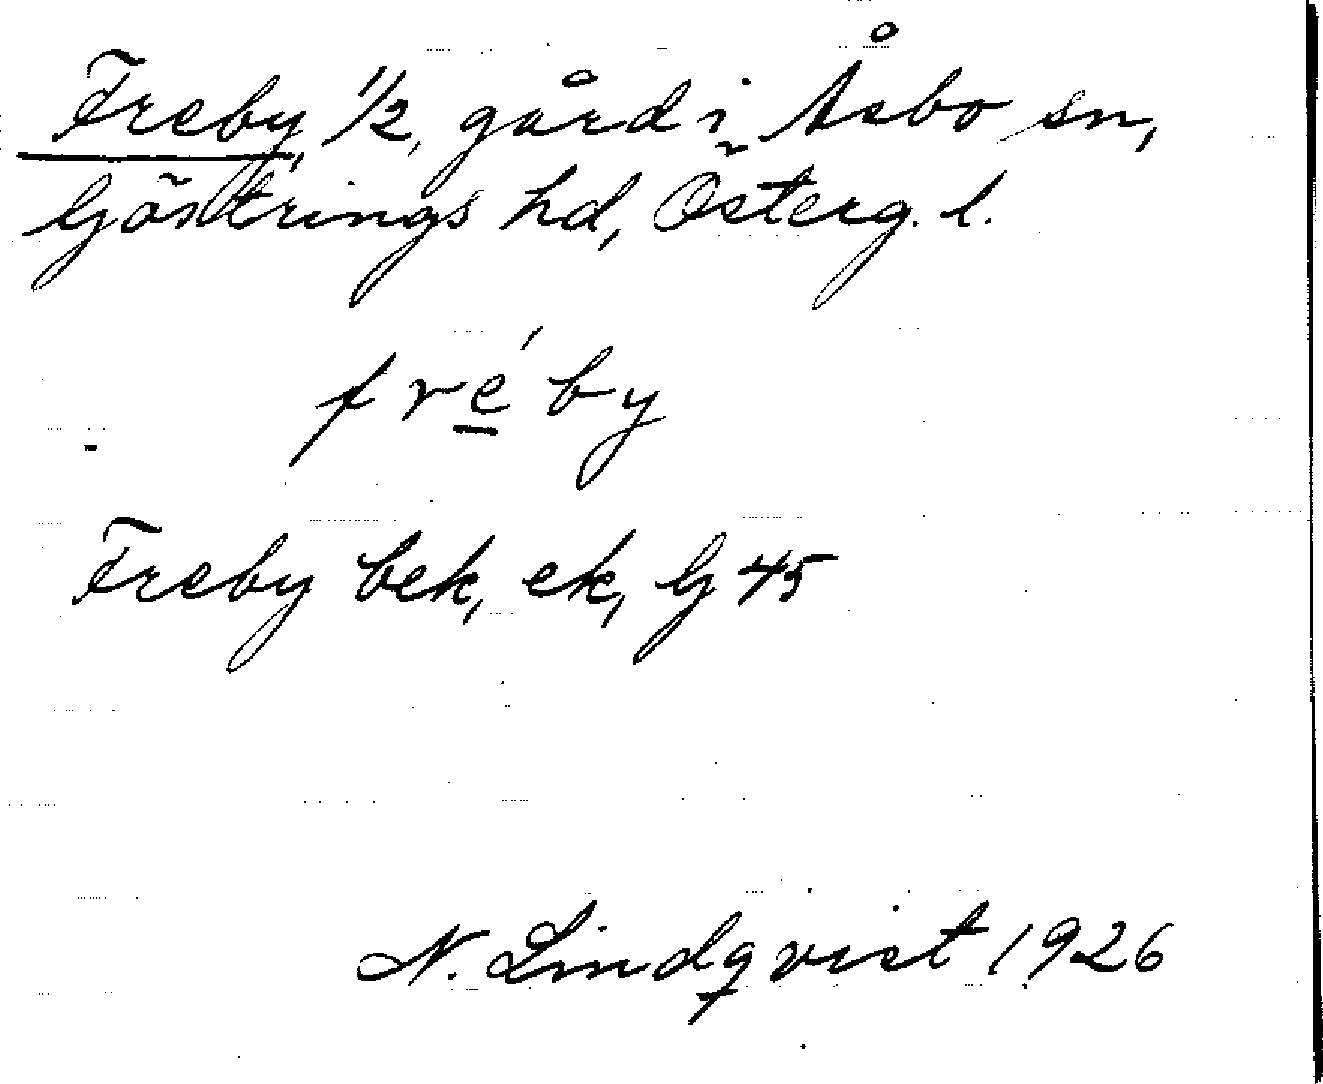 Freby, 1/2, gård i Åsbo sn,
Göstrings hd, Österg. l.
fré̲by
Freby bek, ek, G 45
N. Lindqvist 1926